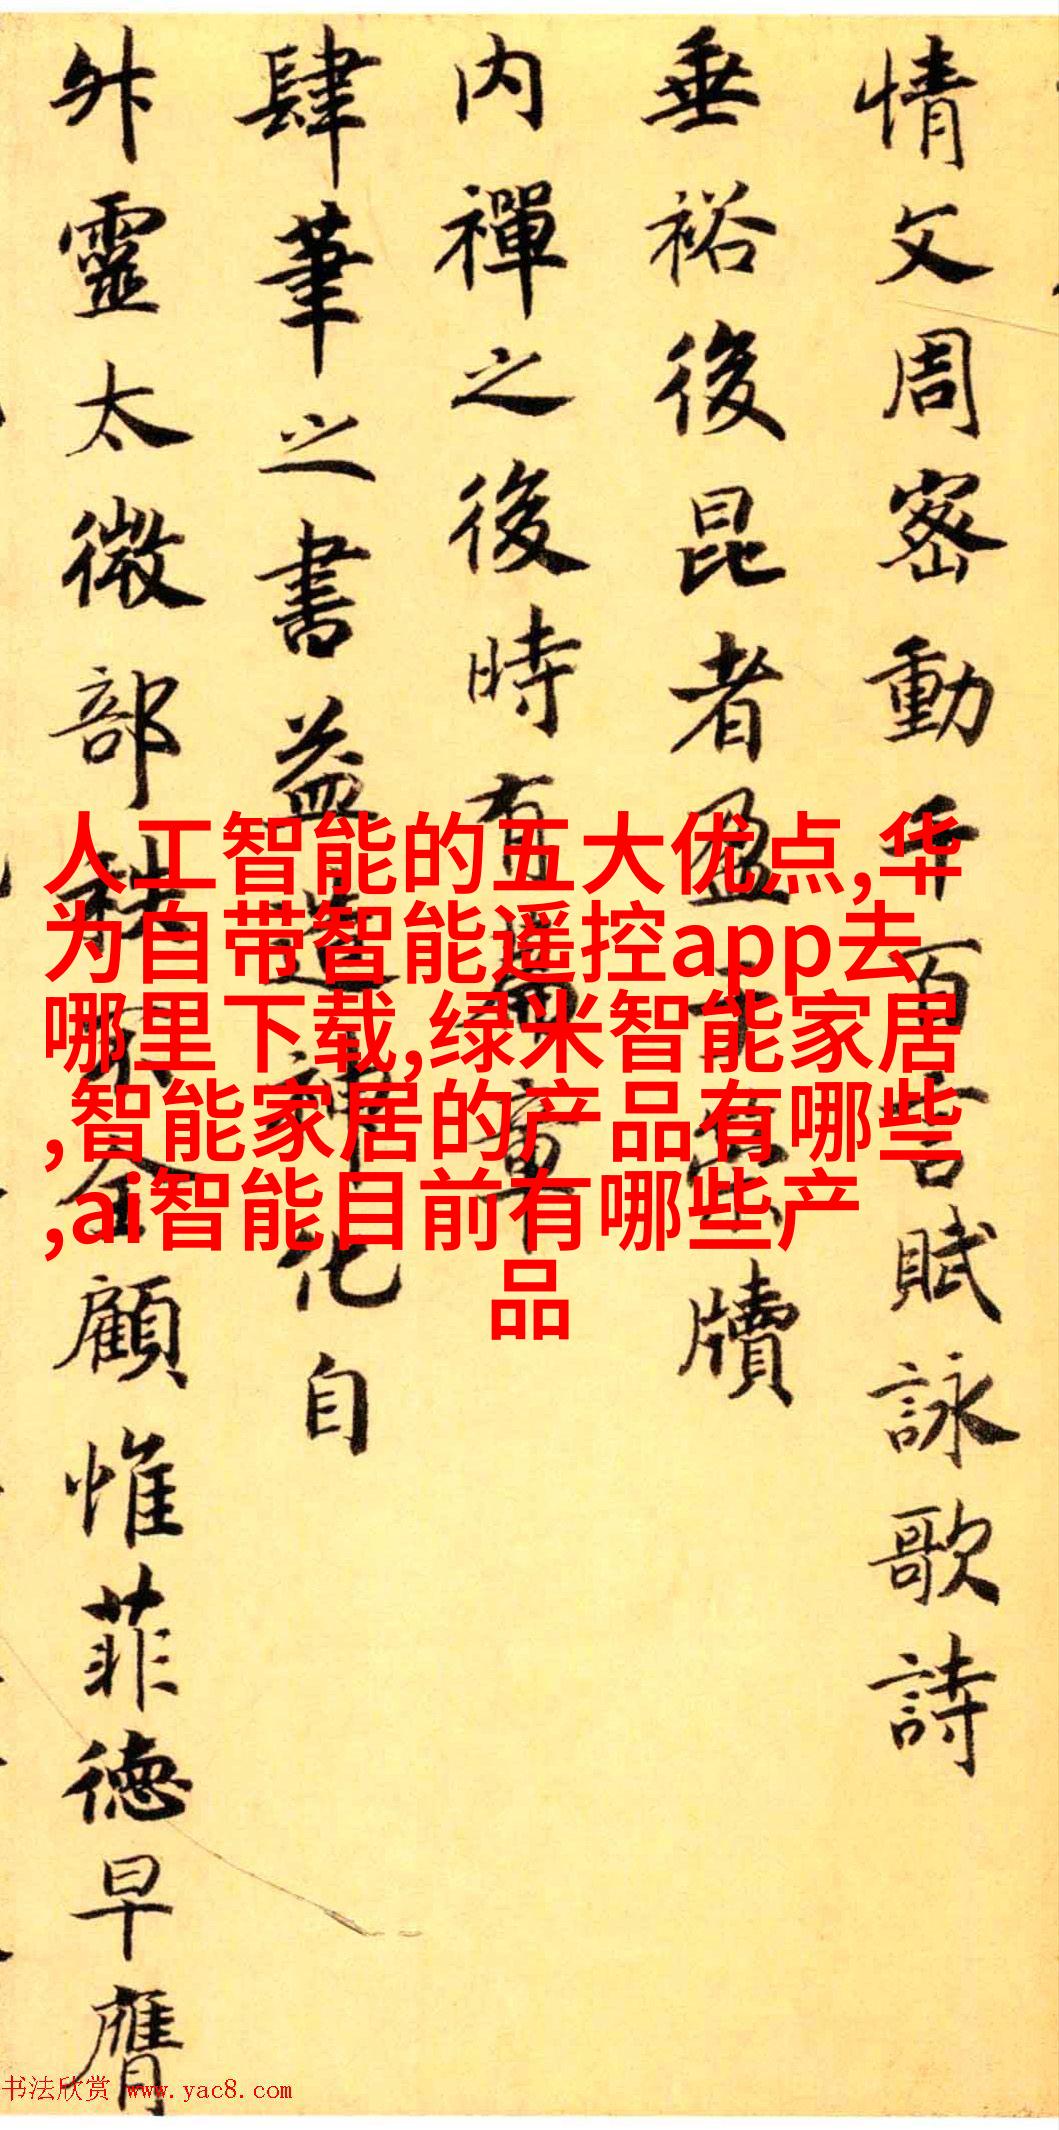 情文周密動千百言賦詠歌詩
垂裕後昆者盈于牘
内禪之後時有章
肆筆之書益造神化自
靈太微部顧惟菲德早膺
人工智能的五大优点,华
为自带智能遥控app去
哪里下载,绿米智能家居
,智能家居的产品有哪些
,ai智能目前有哪些产
品
书法欣赏 www.yac8.com